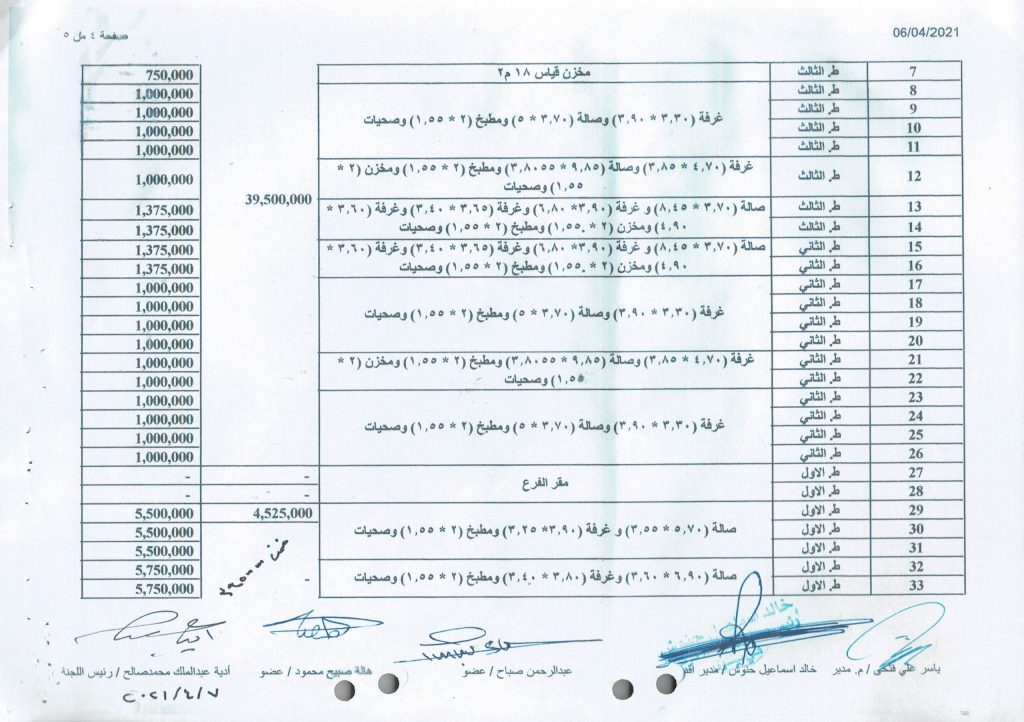 06/04/2021
صفحة ٤ مل ٥
7 ط. الثالث مخزن قياس ١٨ م٢ 750,000
8 ط. الثالث 1,000,000
9 ط. الثالث 1,000,000
غرفة (٣,٣٠ * ٣,٩٠) وصالة (٣,٧٠ * ٥) ومطبخ (٢ * ١,٥٥) وصحيات
10 ط. الثالث 1,000,000
11 ط. الثالث 1,000,000
12 ط. الثالث 1,000,000
غرفة (٤,٧٠ * ٣,٨٥) وصالة (٩,٨٥ * ٣,٨٠٥٥) ومطبخ (٢ * ١,٥٥) ومخزن (٢ *
١,٥٥) وصحيات
39,500,000
13 ط. الثالث 1,375,000
صالة (٣,٧٠ * ٨,٤٥) و غرفة (٣,٩٠* ٦,٨٠) وغرفة (٣,٦٥ * ٣,٤٠) وغرفة (٣,٦٠ *
٤,٩٠ ومخزن (٢ * ١,٥٥٠) ومطبخ (٢ * ١,٥٥) وصحيات
14 ط. الثالث 1,375,000
15 ط. الثاني 1,375,000
صالة (٣,٧٠ * ٨,٤٥) و غرفة (٣,٩٠* ٦,٨٠) وغرفة (٣,٦٥ * ٣,٤٠) وغرفة (٣,٦٠ *
٤,٩٠) ومخزن (٢ * ١,٥٥٠) ومطبخ (٢ * ١,٥٥) وصحيات
16 ط. الثاني 1,375,000
17 ط. الثاني 1,000,000
18 ط. الثاني 1,000,000
غرفة (٣,٣٠ * ٣,٩٠) وصالة (٣,٧٠ * ٥) ومطبخ (٢ * ١,٥٥) وصحيات
19 ط. الثاني 1,000,000
20 ط. الثاني 1,000,000
21 ط. الثاني 1,000,000
غرفة (٤,٧٠ * ٣,٨٥) وصالة (٩,٨٥ * ٣,٨٠٥٥) ومطبخ (٢ * ١,٥٥) ومخزن (٢ *
١,٥٥) وصحيات
22 ط. الثاني 1,000,000
23 ط. الثاني 1,000,000
24 ط. الثاني 1,000,000
غرفة (٣,٣٠ * ٣,٩٠) وصالة (٣,٧٠ * ٥) ومطبخ (٢ * ١,٥٥) وصحيات
25 ط. الثاني 1,000,000
26 ط. الثاني 1,000,000
27 ط. الاول - -
مقر الفرع
28 ط. الاول - -
29 ط. الاول 4,525,000 5,500,000
30 ط. الاول 5,500,000
صالة (٥,٧٠ * ٣,٥٥) و غرفة (٣,٩٠* ٣,٢٥) ومطبخ (٢ * ١,٥٥) وصحيات
31 ط. الاول 5,500,000
32 ط. الاول 5,750,000
صالة (٦,٩٠ * ٣,٦٠) وغرفة (٣,٨٠ * ٣,٤٠) ومطبخ (٢ * ١,٥٥) وصحيات
33 ط. الاول - 5,750,000
ياسر علي فتحي / م. مدير
خالد اسماعيل حنوش / مدير
عبدالرحمن صباح / عضو
هالة صبيح محمود / عضو
أدية عبدالملك محمدصالح / رئيس اللجنة
٢٠٢١/٤/٧